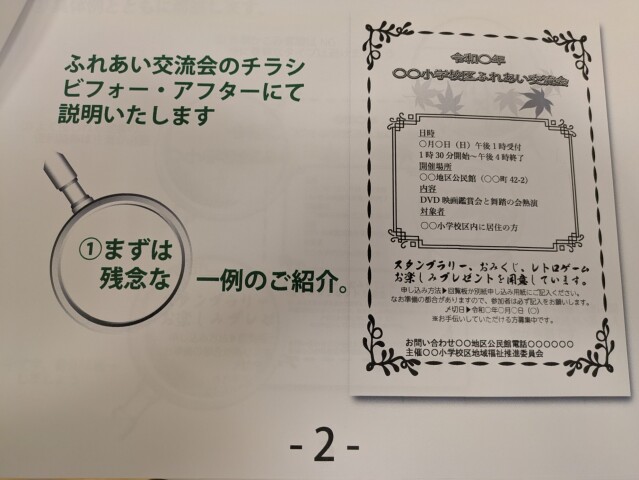 ふれあい交流会のチラシ
ビフォー・アフターにて
説明いたします
①まずは
残念な 一例のご紹介。
令和〇年
〇〇小学校区ふれあい交流会
日時
〇月〇日（日）午後1時受付
1時30分開始～午後4時終了
開催場所
〇〇地区公民館（〇〇町 42-2）
内容
DVD 映画鑑賞会と舞踏の会熱演
対象者
〇〇小学校区内に居住の方
スタンプラリー、おみくじ、レトロゲーム
お楽しみプレゼントを開催しています。
申し込み方法▶回覧板か別紙申し込み用紙にご記入ください。
なお準備の都合がありますので、参加者は必ず記入をお願いします。
〆切日▶令和〇年〇月〇日（〇）
※お手伝いしていただける方募集中です。
お問い合わせ〇〇地区公民館電話〇〇〇〇〇〇
主催〇〇小学校区地域福祉推進委員会
- 2 -